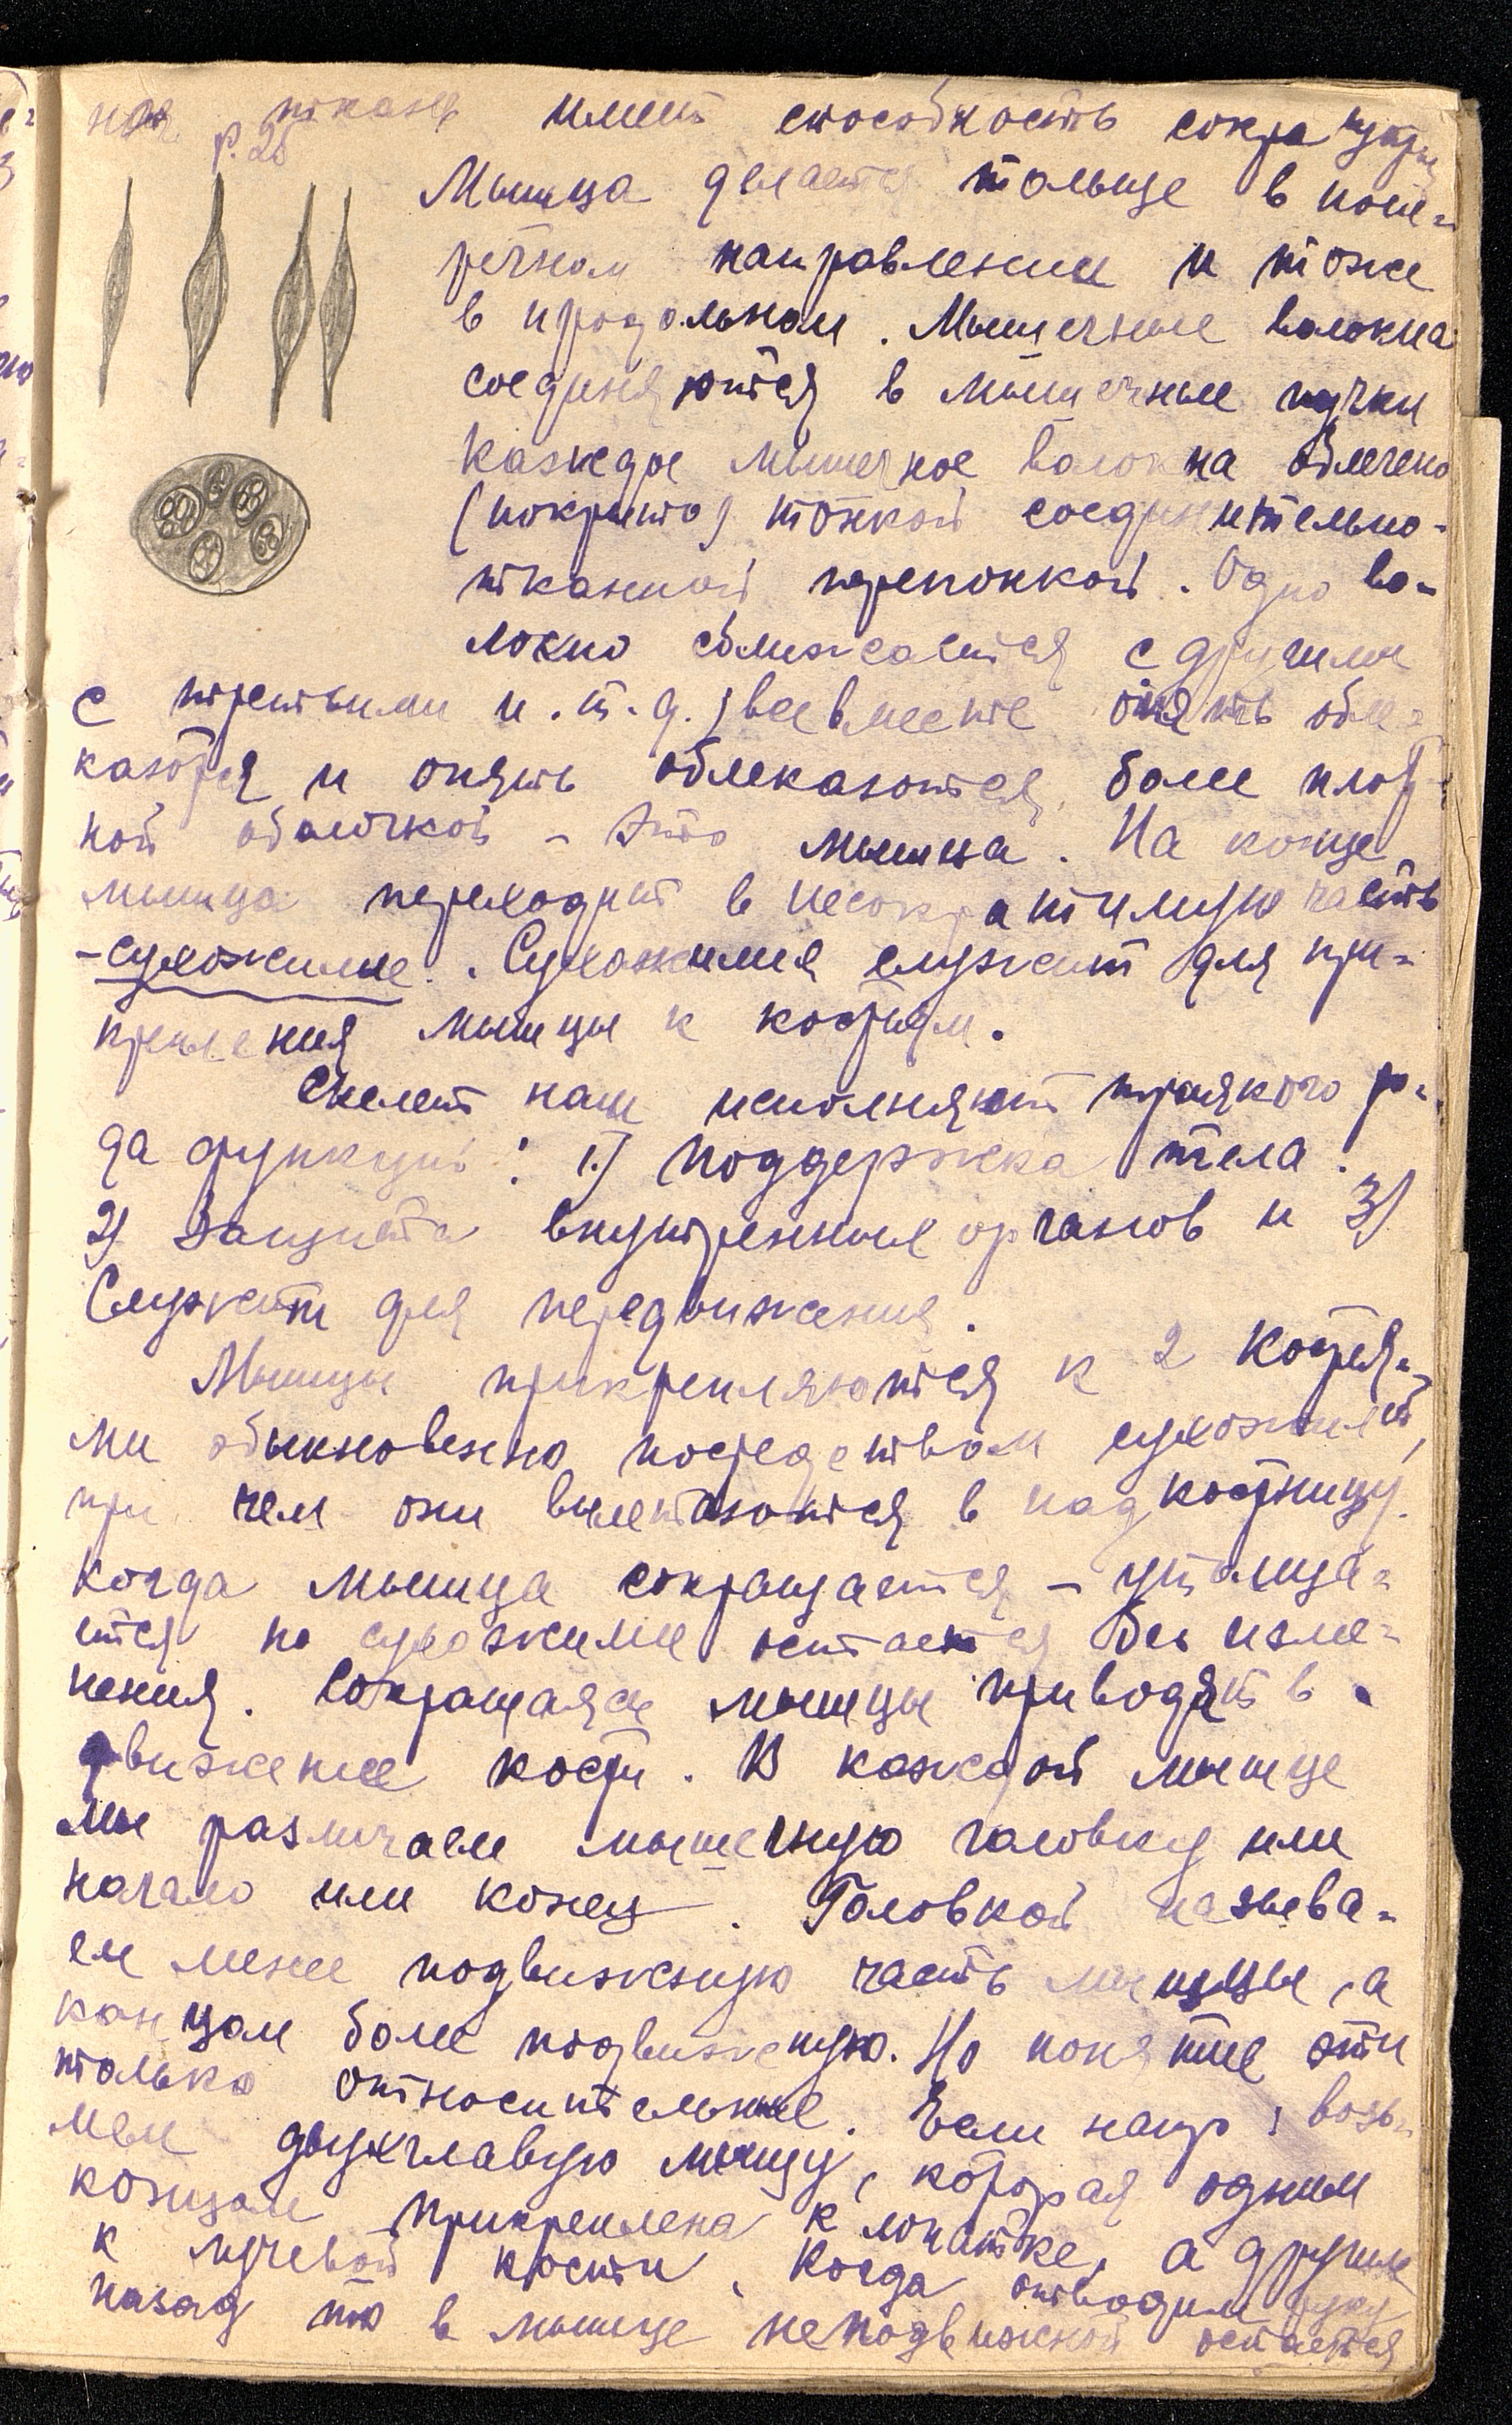 ная ткань имеет способность сокращ
р. 28
Мышца делается тольще в попе-
речном направлении и тоже
в продольном. Мышечные волокна
соединяются в мышечные пучки
Каждое мышечное волокна облечено
(покрыто) тонкой соединительно-
тканной перепонкой. Одно во-
локно сближается с другими
с третьими и.т.д. все вместе опять обле-
каются и опять облекаются более плот-
ной оболочкой - это мышца. На конце
мышца переходит в несократимую часть
-сухожилие. Сухожилия служит для при-
крепления мышцы к костям.
Скелет наш исполняет троякого ро-
да функции: 1) Поддержка тела.
2) Защита внутренние органов и 3)
Служит для передвижения.
Мышцы прикрепляются к 2 костя-
ми обыкновенно посредством сухожилий,
при чем они вплетаются в надкостницу.
Когда мышца сокращается - утолща-
ется но сухожилие остается без изме-
нения. Сокращаясь мышцы приводят в
движение кости. В каждой мышце
мы различаем мышечную головку или
начало или конец. Головкой называ-
ем менее подвижную часть мышцы, а
концом более подвижную. Но понятие эти
только относительные. Если напр, возь-
мем двухглавую мышцу, которая одним
концом прикреплена к лопатке, а другим
к лучевой кости. Когда отводим руку
назад то в мышце неподвижной остается